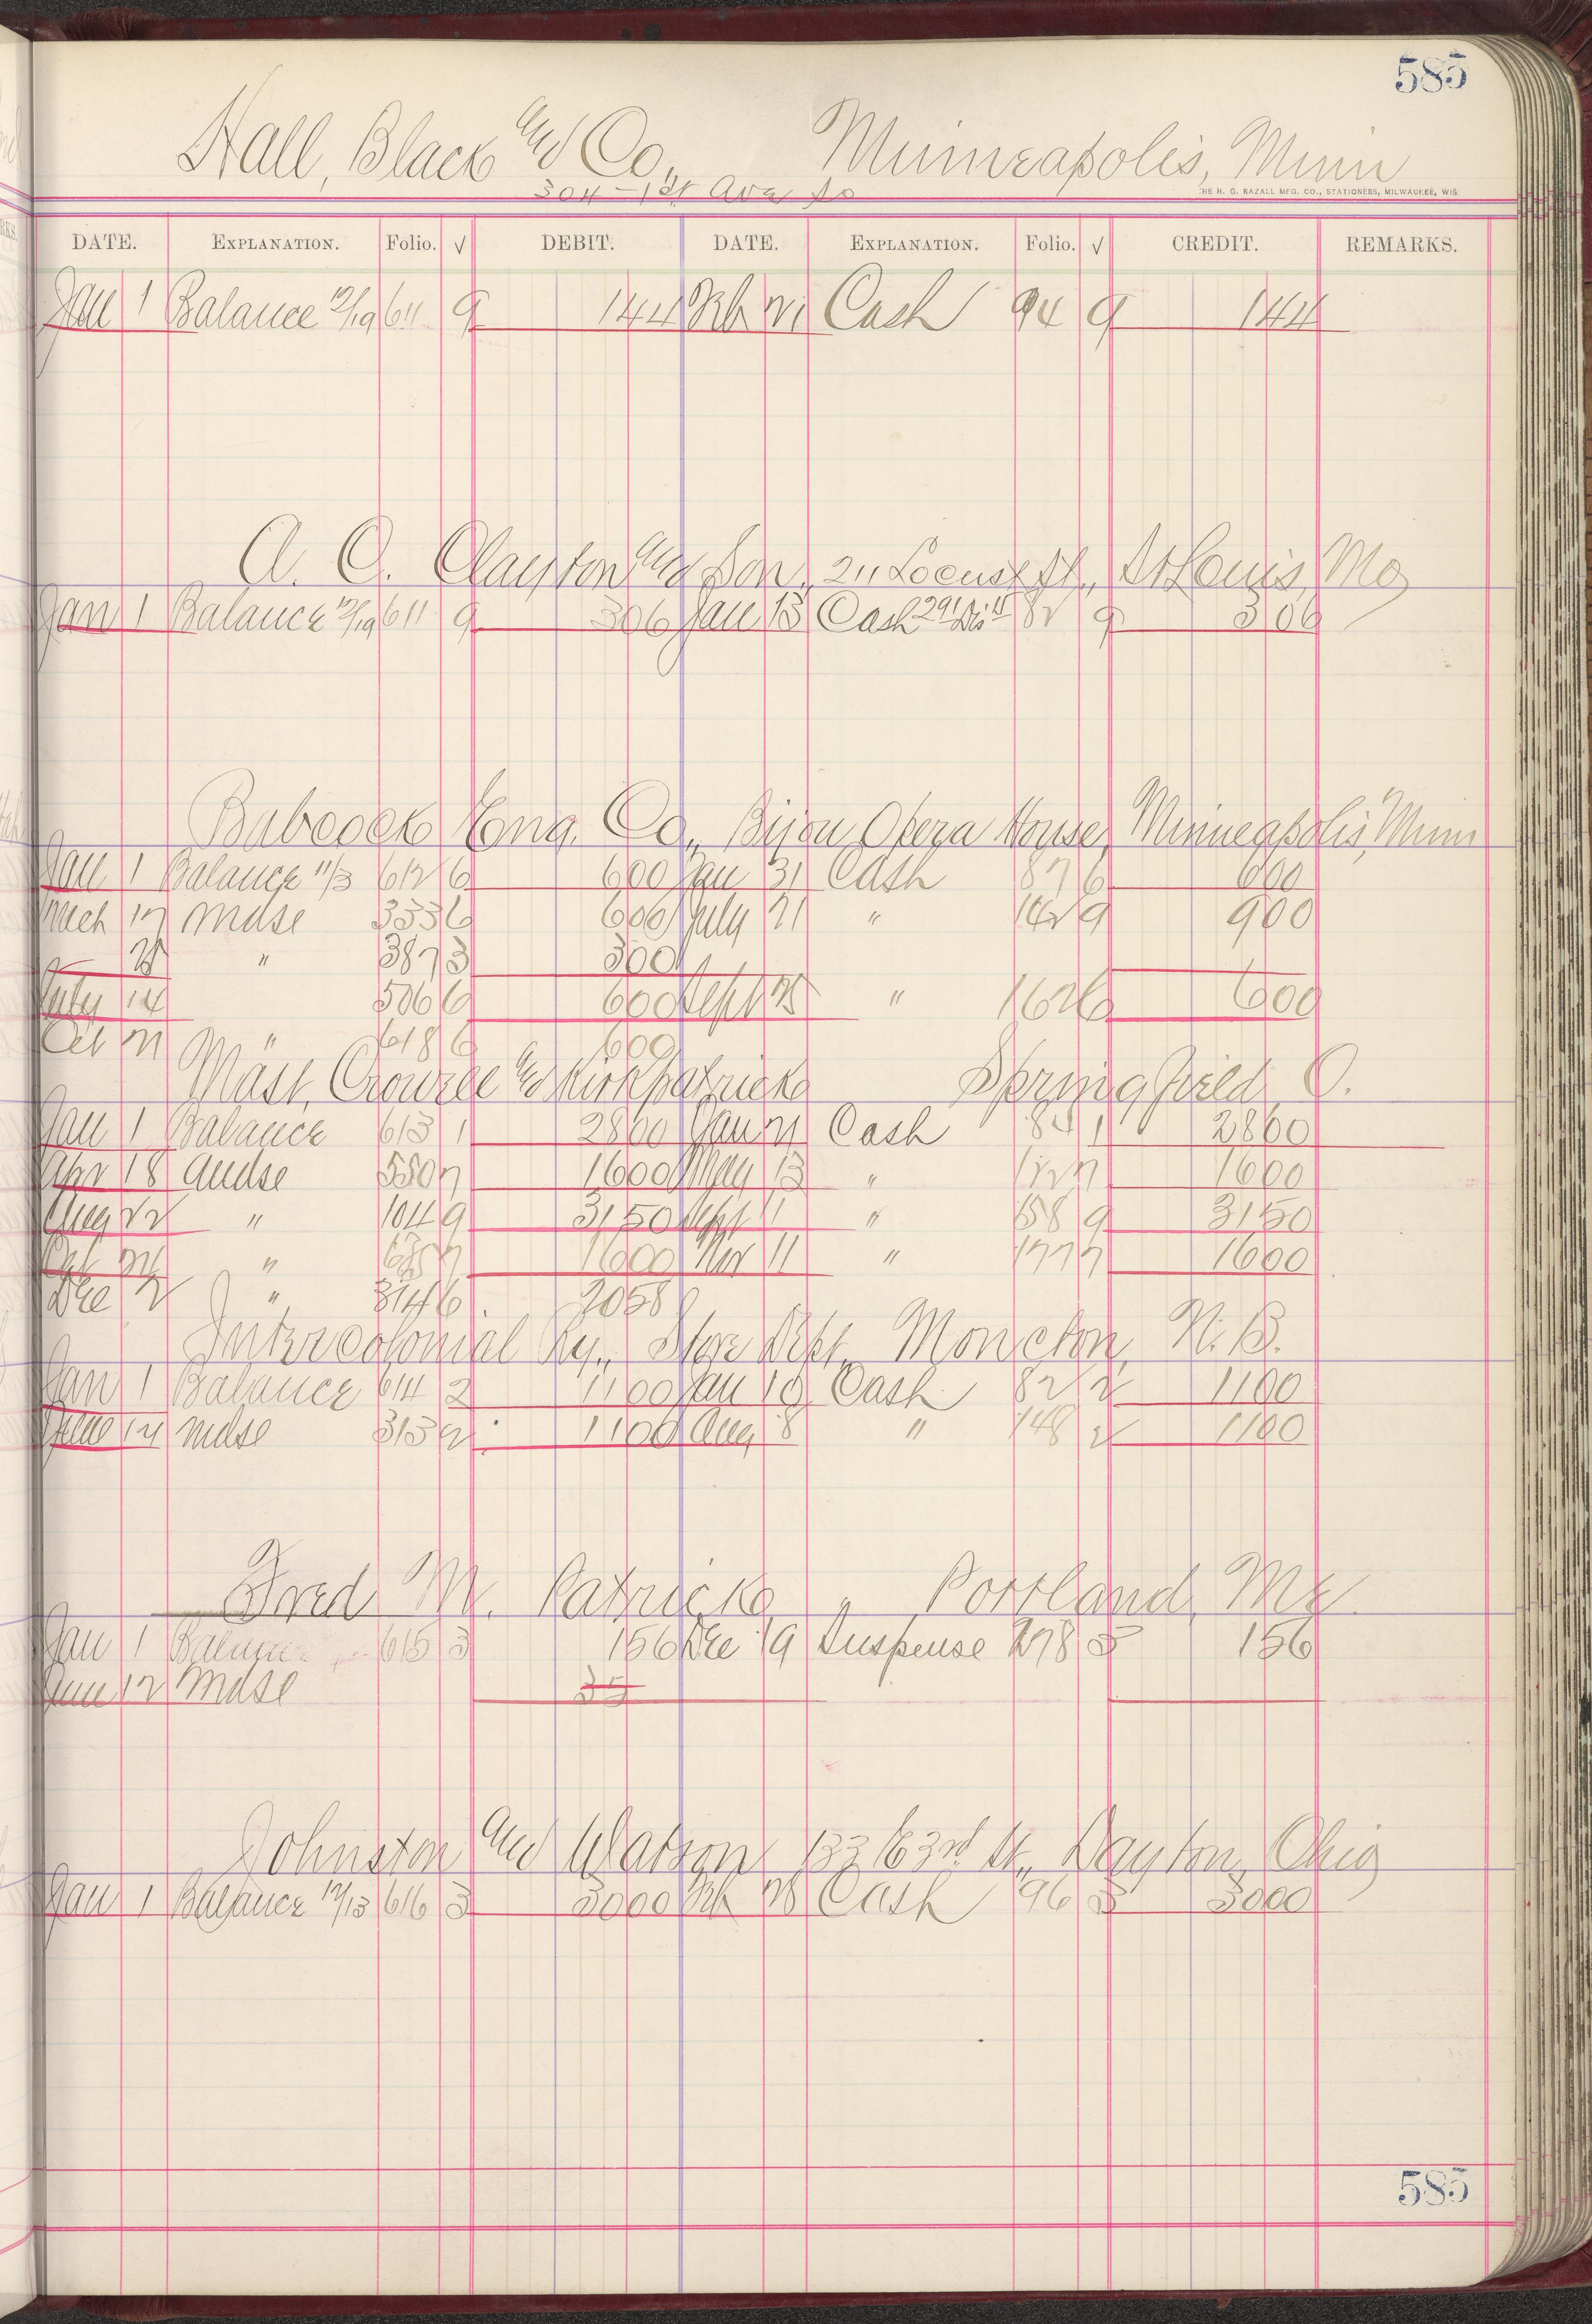 585
Hall, Black and Co., Minneapolis, Minn
304 - 1st Ave So
THE H. G. RAZALL MFG. CO., STATIONERS, MILWAUKEE, WIS.
DATE. EXPLANATION. Folio. √ DEBIT. DATE. EXPLANATION. Folio. √ CREDIT. REMARKS.
Jan 1 Balance 12/19 611 9 144 Feb 21 Cash 94 9 144
A. C. Clayton and Son, 211 Locust St., St Louis, Mo
Jan 1 Balance 12/19 611 9 306 Jan 13 Cash 82 9 306
Babcock Eng. Co., Bijou Opera House, Minneapolis, Minn
Jan 1 Balance 11/3 612 6 600 Jan 31 Cash 87 6 600
Mch 17 Mdse 353 6 600 July 21 " 142 9 900
" 387 3 300
July 14 506 6 600 Sept 25 " 162 6 600
Oct 21 " 618 6 600
Mast, Crowell and Kirkpatrick Springfield, O.
Jan 1 Balance 613 1 2860 Jan 21 Cash 84 1 2860
Apr 18 Mdse 550 7 1600 May 13 " 122 7 1600
Aug 22 " 104 9 3150 Sept 11 " 158 9 3150
Oct 24 " 625 7 1600 Nov 11 " 177 7 1600
Dec 2 " 314 6 7058
Intercolonial Ry., Store Dept, Moncton, N. B.
Jan 1 Balance 614 2 1100 Jan 10 Cash 82 2 1100
June 14 Mdse 313 2 1100 Aug 8 " 148 2 1100
Fred M. Patrick, Portland, Me
Jan 1 Balance 615 3 156 Dec 19 Suspense 278 3 156
Jan 12 Mdse 35
Johnston and Watson 133 E 3rd St., Dayton, Ohio
Jan 1 Balance 12/13 616 3 3000 Feb 28 Cash 96 3 3000
585